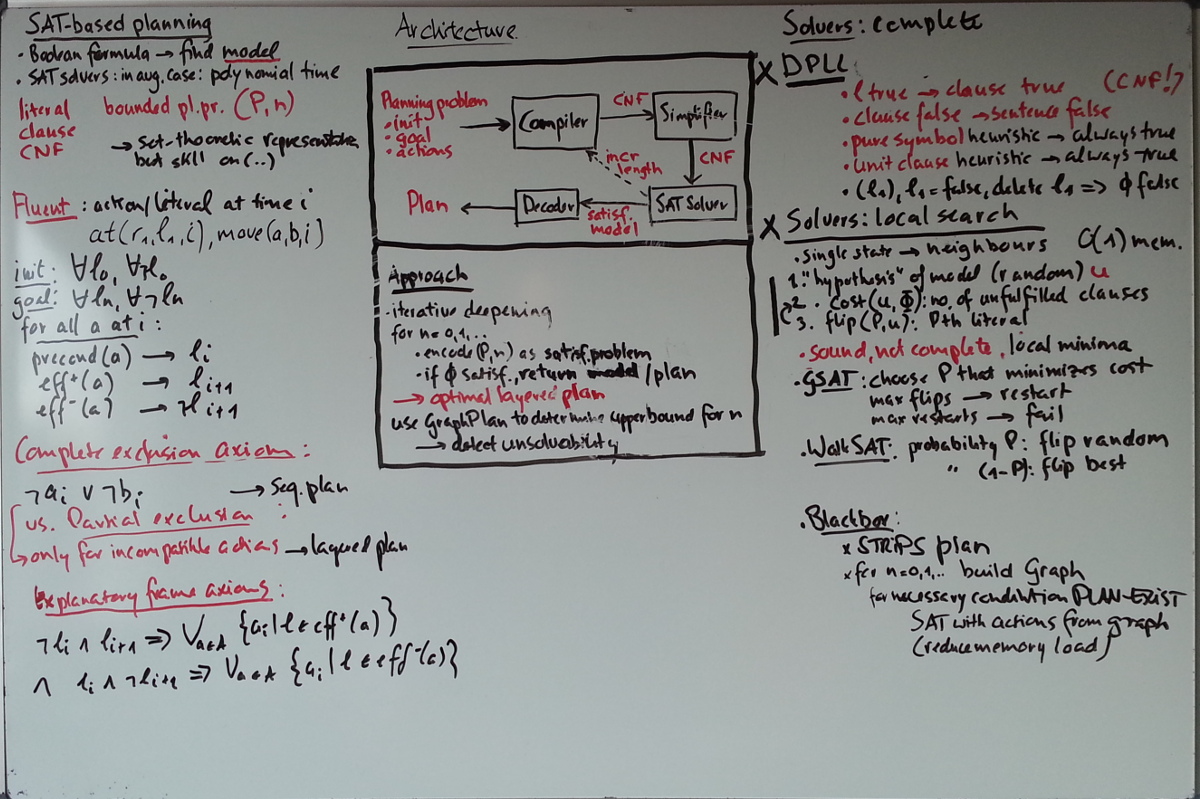 SAT-based planning
• Boolean formula → find model
• SAT solvers: in avg. case: polynomial time
literal bounded pl. pr. (P, n)
clause
CNF → set-thoretic representation, but still on (..)
Fluent: action/literal at time i
at(r₁,l₁,i), move(a,b,i)
init: ∀l₀, ∀¬l₀
goal: ∀ln, ∀¬ln
for all a at i:
precond(a) → li
eff⁺(a) → li+1
eff⁻(a) → ¬li+1
Complete exclusion axiom:
¬ai ∨ ¬bi → Seq. plan
vs. Partial exclusion :
↳ only for incompatible actions → layered plan
Explanatory frame axioms:
¬li ∧ li+1 => Va∈A {ai | l ∈ eff⁺(a)}
∧ li ∧ ¬li+1 => Va∈A {ai | l ∈ eff⁻(a)}
Architecture
Planning problem
• init
• goal
• actions
Compiler
CNF
Simplifier
CNF
incr length
SAT Solver
satisf. model
Decoder
Plan
Approach
• iterative deepening
for n=0,1,...
• encode (P,n) as satisf. problem
• if ϕ satisf., return model/plan
→ optimal layered plan
use GraphPlan to determine upperbound for n
→ detect unsolvability
Solvers: complete
x DPLL
• l true → clause true (CNF!)
• clause false → sentence false
• pure symbol heuristic → always true
• unit clause heuristic → always true
• (l₁), l₁ = false, delete l₁ => ϕ false
x Solvers: local search
• single state → neighbours O(1) mem.
1. "hypothesis" of model (random) u
2. • cost(u,Φ): no. of unfulfilled clauses
3. flip(P,u): Pth literal
• sound, not complete, local minima
• GSAT: choose P that minimizes cost
max flips → restart
max restarts → fail
• WalkSAT: probability P: flip random
" (1-P): flip best
• Blackbox:
x STRIPS plan
x for n=0,1,.. build Graph
for necessary condition PLAN-EXIST
SAT with actions from graph
(reduce memory load)